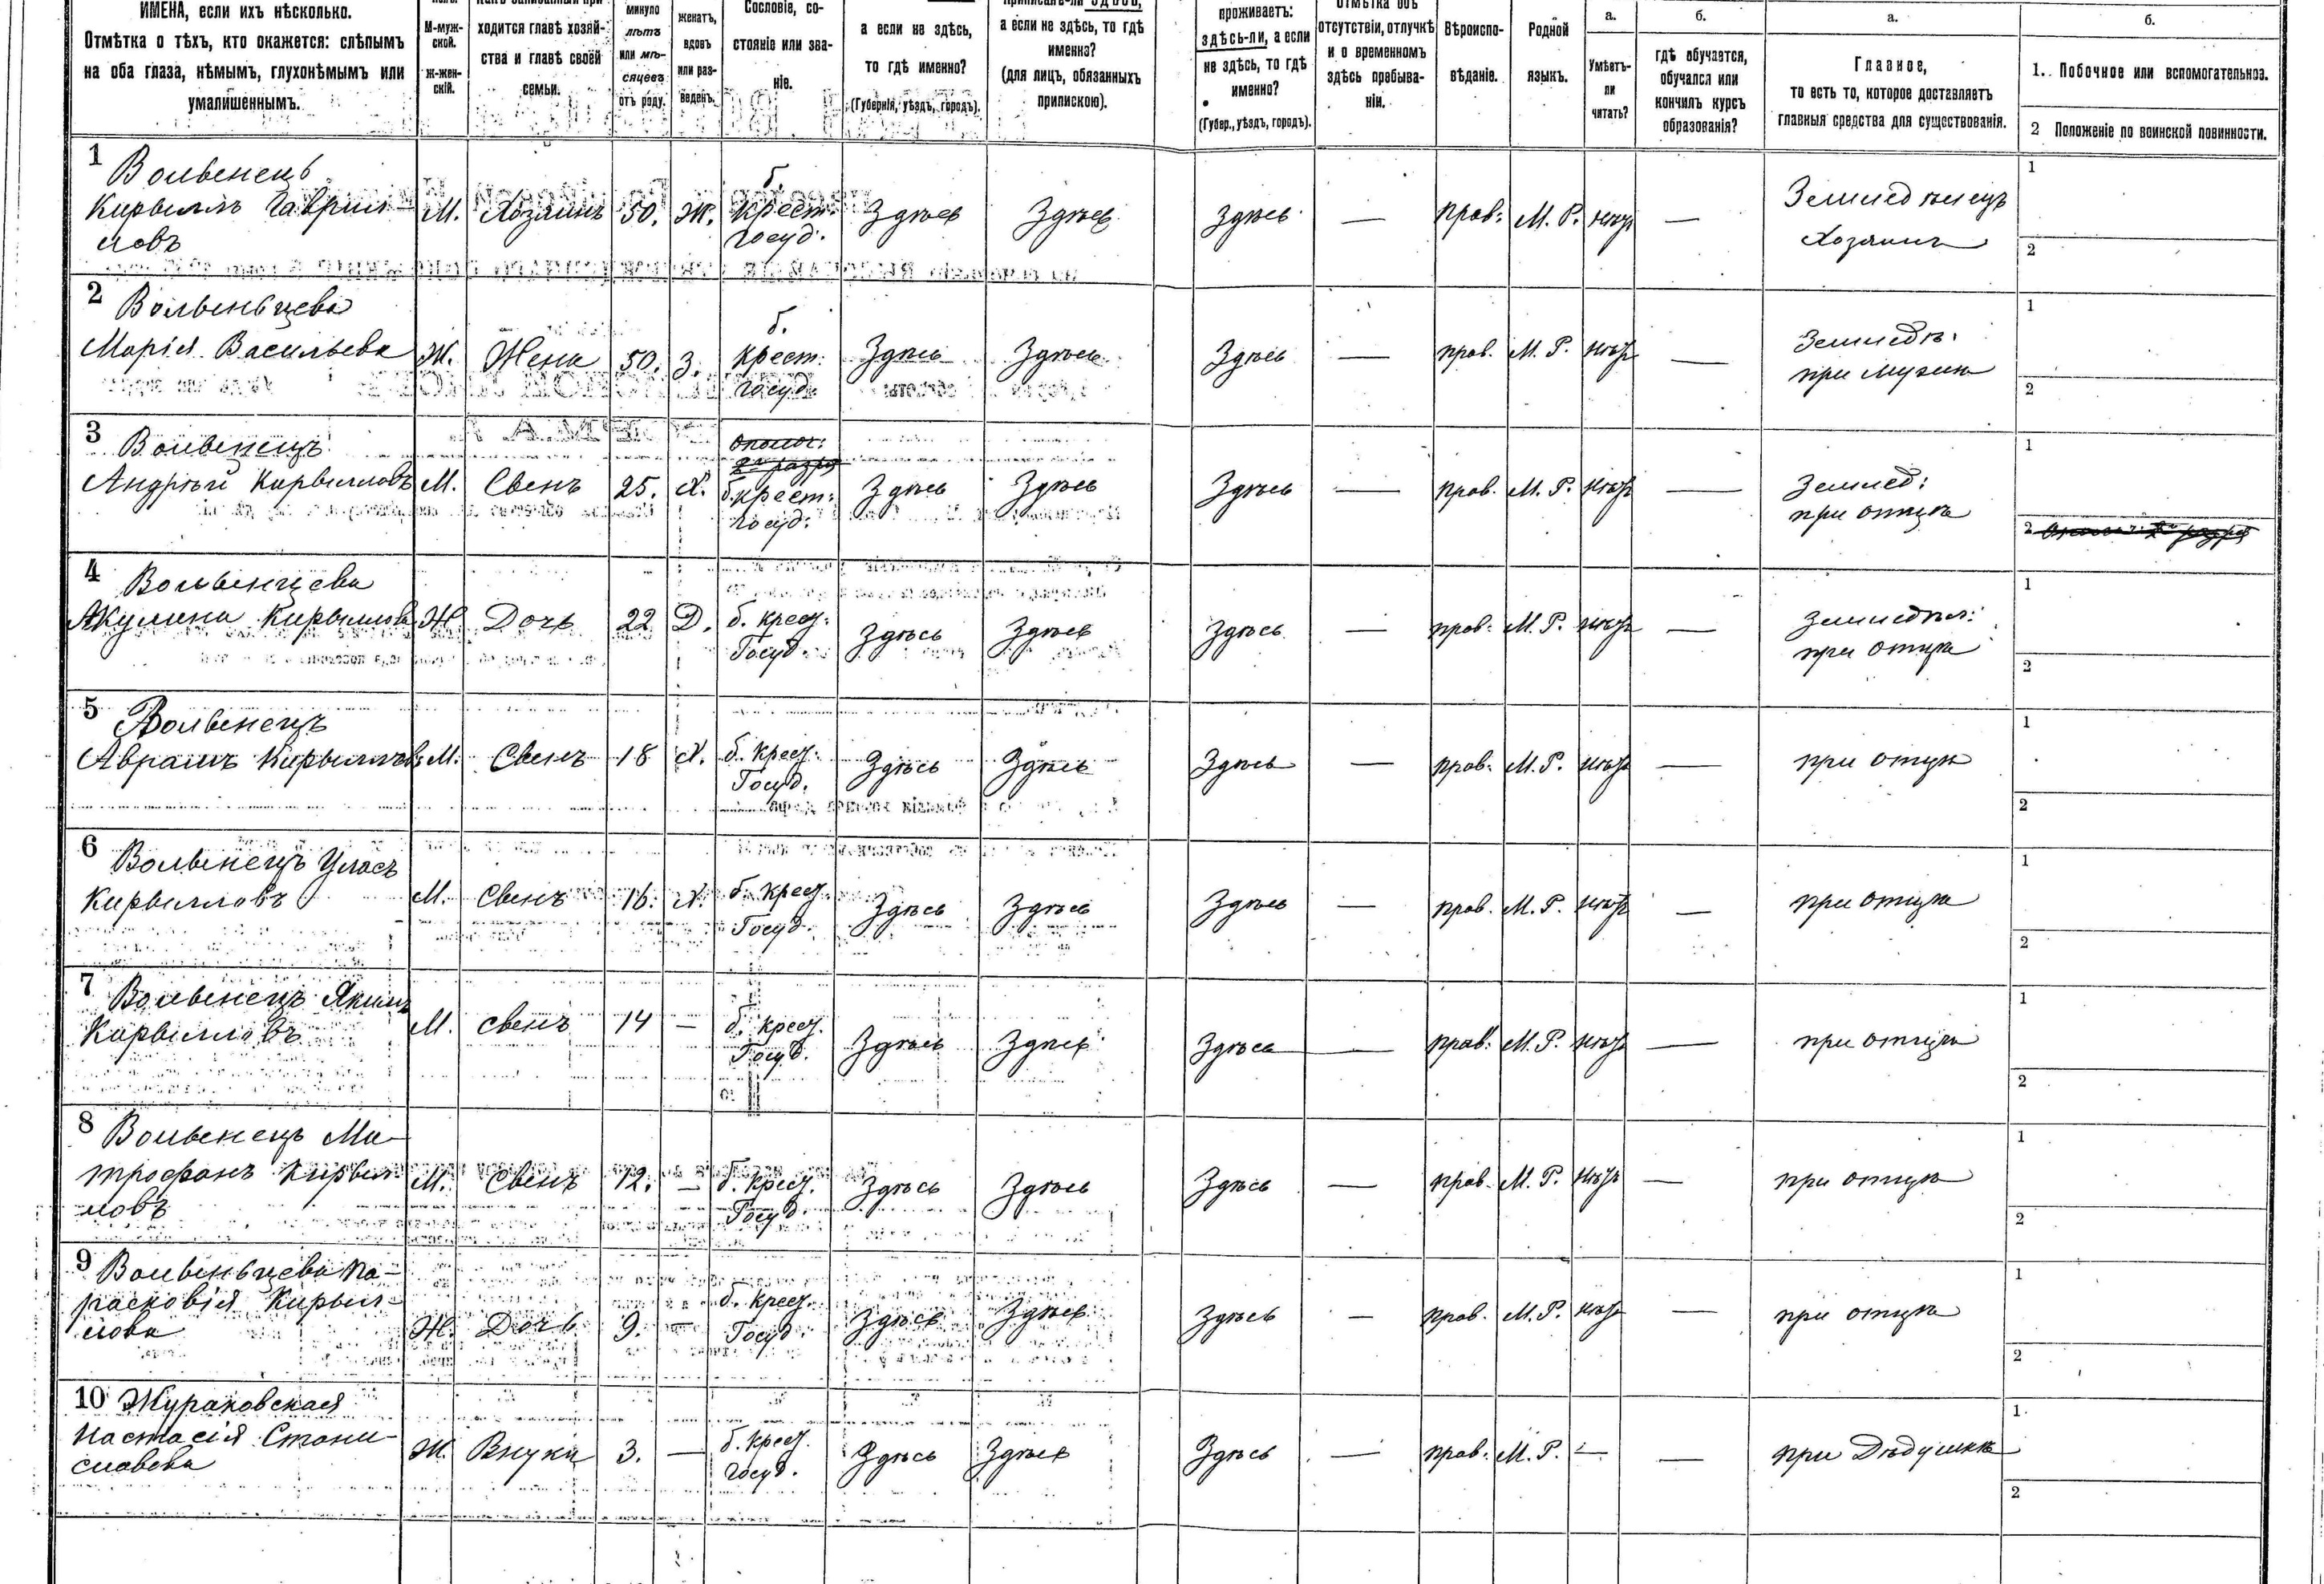 ИМЕНА, если ихъ нѣсколько.
Отмѣтка о тѣхъ, кто окажется: слѣпымъ
на оба глаза, нѣмымъ, глухонѣмымъ или
умалишеннымъ.
М-муж-
ской.
Ж-жен-
скій.
ходится главѣ хозяй-
ства и главѣ своей
семьи.
минуло
лѣтъ
или мѣ-
сяцевъ
отъ роду.
женатъ,
вдовъ
или раз-
веденъ.
Сословіе, со-
стояніе или зва-
ніе.
а если не здѣсь,
то гдѣ именно?
(Губернія, уѣздъ, городъ).
а если не здѣсь, то гдѣ
именно?
(для лицъ, обязанныхъ
припискою).
проживаетъ:
здѣсь-ли, а если
не здѣсь, то гдѣ
именно?
(Губер., уѣздъ, городъ).
Отмѣтка объ
отсутствіи, отлучкѣ
и о временномъ
здѣсь пребыва-
ніи.
Вѣроиспо-
вѣданіе.
Родной
языкъ.
а.
Умѣетъ-
ли
читать?
б.
гдѣ обучается,
обучался или
кончилъ курсъ
образованія?
а.
Главное,
то есть то, которое доставляетъ
главныя средства для существованія.
б.
1. Побочное или вспомогательное.
2 Положеніе по воинской повинности.
1 Волынецъ
Кирыллъ Гаврил-
ловъ
М. Хозяинъ 50. Ж. б. крест. госуд. Здѣсь Здѣсь Здѣсь — прав. М. Р. нѣтъ — Земледѣлецъ Хозяинъ 1 2
2 Волыньцева
Марія Васильева
Ж. Жена 50. З. б. крест. госуд. Здѣсь Здѣсь Здѣсь — прав. М. Р. нѣтъ — Земледѣ: при мужѣ 1 2
3 Волынецъ
Андрѣй Кирылловъ
М. Свенъ 25. Х. ополч: 2го разря б. крест: госуд: Здѣсь Здѣсь Здѣсь — прав. М. Р. нѣтъ — Землед: при отцѣ 1 2 ополч: 2го разря
4 Волынцева
Акулина Кирылов
Ж Дочь 22 Д. б. крест: Госуд. Здѣсь Здѣсь Здѣсь — прав. М. Р. нѣтъ — Земледѣл: при отцѣ 1 2
5 Волынецъ
Аврамъ Кирылловъ
М. Свенъ 18 Х. б. крест. Госуд. Здѣсь Здѣсь Здѣсь — прав. М. Р. нѣтъ — при отцѣ 1 2
6 Волынецъ Уласъ
Кирылловъ
М. Свенъ 16. Х. б. крест. Госуд. Здѣсь Здѣсь Здѣсь — прав. М. Р. нѣтъ — при отцѣ 1 2
7 Волынецъ Якимъ
Кирылловъ
М. свенъ 14 — б. крест. Госуд. Здѣсь Здѣсь Здѣсь — прав. М. Р. нѣтъ — при отцѣ 1 2
8 Волынецъ Ми-
трофанъ Кирыл-
ловъ
М. Свенъ 12. — б. крест. Госуд. Здѣсь Здѣсь Здѣсь — прав. М. Р. нѣтъ — при отцѣ 1 2
9 Волыньцева Па-
расковія Кирыл-
лова
Ж. Дочь 9. — б. крест. Госуд. Здѣсь Здѣсь Здѣсь — прав. М. Р. нѣтъ — при отцѣ 1 2
10 Жураковская
Настасія Стани-
славова
Ж. Внука 3. — б. крест. госуд. Здѣсь Здѣсь Здѣсь — прав. М. Р. — — при Дѣдушкѣ 1 2